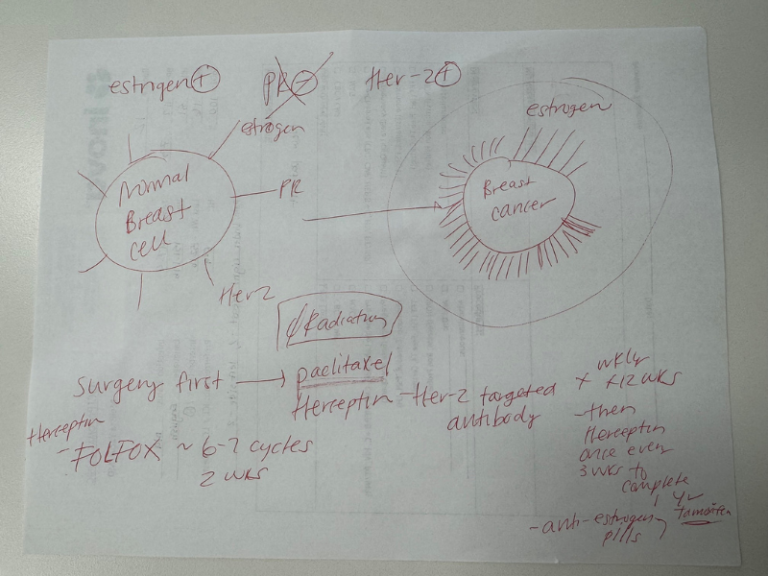 estrogen +
PR -
Her-2 +
estrogen
Normal
Breast
cell
PR
Her2
estrogen
Breast
cancer
Radiation
Surgery first → paclitaxel
Herceptin - Her-2 targeted
antibody
x wkly
x12 wks
- then
Herceptin
once every
3 wks to
complete
1 yr
- anti-estrogen
pills
Herceptin
- FOLFOX ~ 6-7 cycles
2 wks